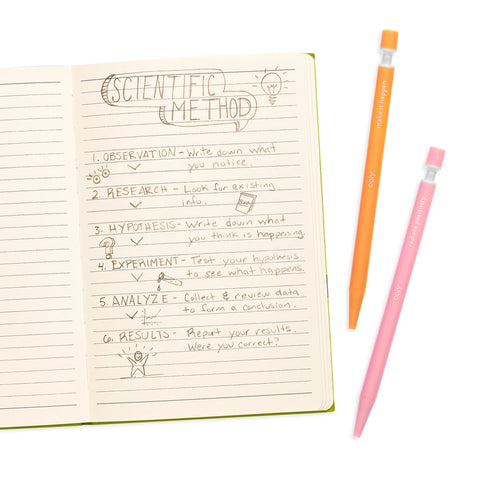 SCIENTIFIC
METHOD
1. OBSERVATION - Write down what
you notice.
2. RESEARCH - Look for existing
info.
3. HYPOTHESIS - Write down what
you think is happening.
4. EXPERIMENT - Test your hypothesis
to see what happens.
5. ANALYZE - Collect & review data
to form a conclusion.
6. RESULTS - Report your results.
Were you correct?
make it happen
ooly
radiate positivity
ooly